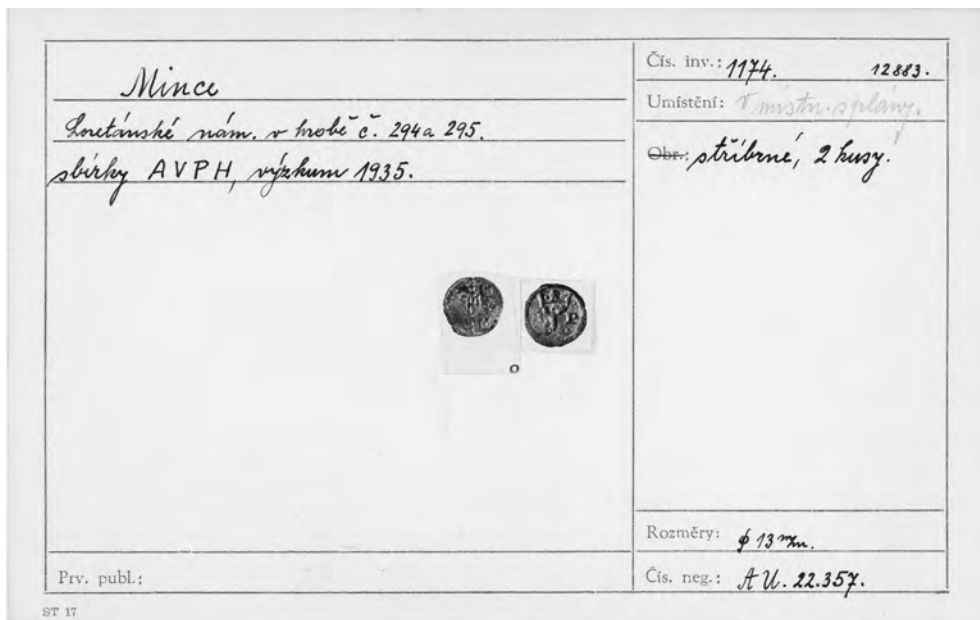 Mince
Loretánské nám. v hrobě č. 294 a 295.
sbírky AVPH, výzkum 1935.
Prv. publ.:
ST 17
Čís. inv.: 1174. 12883.
Umístění: V místn. s plány.
Obr.: stříbrné, 2 kusy.
Rozměry: ϕ 13 mm.
Čís. neg.: AU. 22.357.